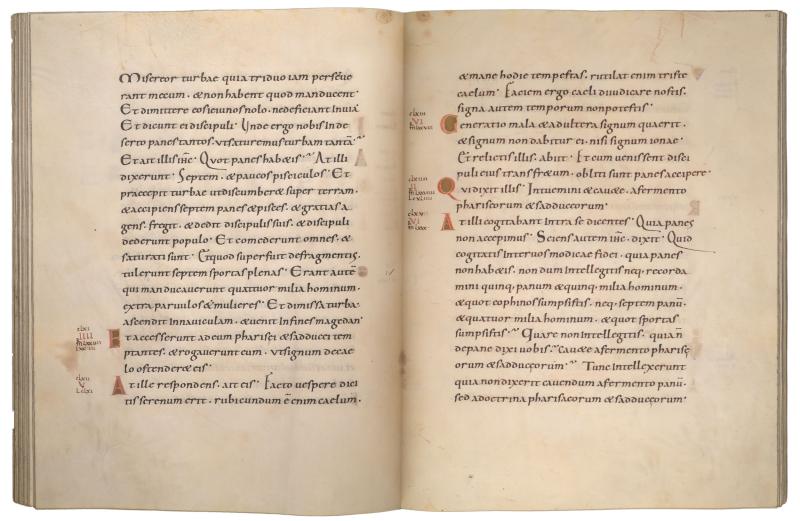 Misereor turbae quia triduo iam perseve
rant mecum · & non habent quod manducent
Et dimittere eos ieiunos nolo · ne deficiant in via
Et dicunt ei discipuli · Unde ergo nobis in de
serto panes tantos · ut saturemus turbam tantā
Et ait illis ihc · Quot panes hab&is · At illi
dixerunt · Septem · & paucos pisciculos · Et
praecepit turbae ut discumber& super terram ·
& accipiens septem panes & pisces · & gratias a
gens · fregit · & dedit discipulis suis · & discipuli
dederunt populo · Et comederunt omnes · &
saturati sunt · Et quod superfuit de fragmentis ·
tulerunt septem sportas plenas · Erant autē
qui manducaverunt quattuor milia hominum ·
extra parvulos & mulieres · Et dimissa turba ·
ascendit in naviculam · & venit in fines magedan
Et accesserunt ad eum pharisei & sadducei tem
ptantes · & rogaverunt eum · ut signum de cae
lo ostender& eis ·
At ille respondens · ait eis · Facto vespere dici
tis serenum erit · rubicundum ē enim caelum ·
& mane hodie tempestas · rutilat enim triste
caelum · Faciem ergo caeli diiudicare nostis ·
signa autem temporum non potestis ·
Generatio mala & adultera signum quaerit ·
& signum non dabitur ei · nisi signum ionae ·
Et relictis illis · abiit · Et cum venissent disci
puli eius trans fr&um · obliti sunt panes accipere ·
Qui dixit illis · Intuemini & cav&e · a fermento
phariseorum & sadducęorum ·
At illi cogitabant intra se dicentes · Quia panes
non accepimus · Sciens autem ihc · dixit · Quid
cogitatis inter vos modicae fidei · quia panes
non hab&is · non dum intellegitis neq; recorda
mini quinq; panum & quinq; milia hominum ·
& quot cophinos sumpsistis · neq; septem panū ·
& quattuor milia hominum · & quot sportas
sumpsistis · Quare non intellegitis · quia ñ
de pane dixi vobis · cav&e a fermento pharisę
orum & sadducęorum · Tunc intellexerunt
quia non dixerit cavendum a fermento panū ·
sed a doctrina pharisaeorum & sadducęorum ·